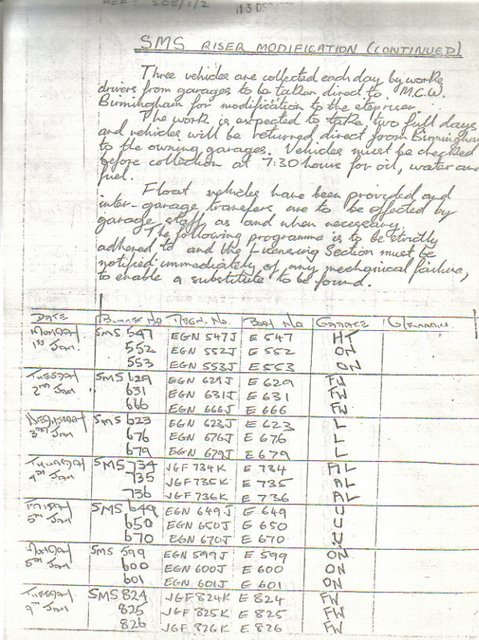 REF: SOE/1/2
13 DE
SMS RISER MODIFICATION (CONTINUED)
Three vehicles are collected each day by works
drivers from garages to be taken direct to M.C.W.
Birmingham for modification to the step riser.
The work is expected to take two full days
and vehicles will be returned direct from Birmingham
to the owning garages. Vehicles must be checked
before collection at 7:30 hours for oil, water and
fuel.
Float vehicles have been provided and
inter-garage transfers are to be effected by
garage staff as and when necessary.
The following programme is to be strictly
adhered to and the Licensing Section must be
notified immediately of any mechanical failure,
to enable a substitute to be found.
DATE Regn. No. Body No GARAGE
MONDAY SMS 547 EGN 547J E 547 HT
1ST JAN. 552 EGN 552J E 552 ON
553 EGN 553J E 553 ON
TUESDAY SMS 629 EGN 629J E 629 FW
2ND JAN 631 EGN 631J E 631 FW
666 EGN 666J E 666 FW
WEDNESDAY SMS 623 EGN 623J E 623 L
3RD JAN 676 EGN 676J E 676 L
679 EGN 679J E 679 L
THURSDAY SMS 734 JGF 734K E 734 AL
4TH JAN 735 JGF 735K E 735 AL
736 JGF 736K E 736 AL
FRIDAY SMS 649 EGN 649J E 649 U
5TH JAN 650 EGN 650J E 650 U
670 EGN 670J E 670 U
MONDAY SMS 599 EGN 599J E 599 ON
JAN 600 EGN 600J E 600 ON
601 EGN 601J E 601 ON
TUESDAY SMS 824 JGF 824K E 824 FW
9TH JAN 825 JGF 825K E 825 FW
826 JGF 826K E 826 FW